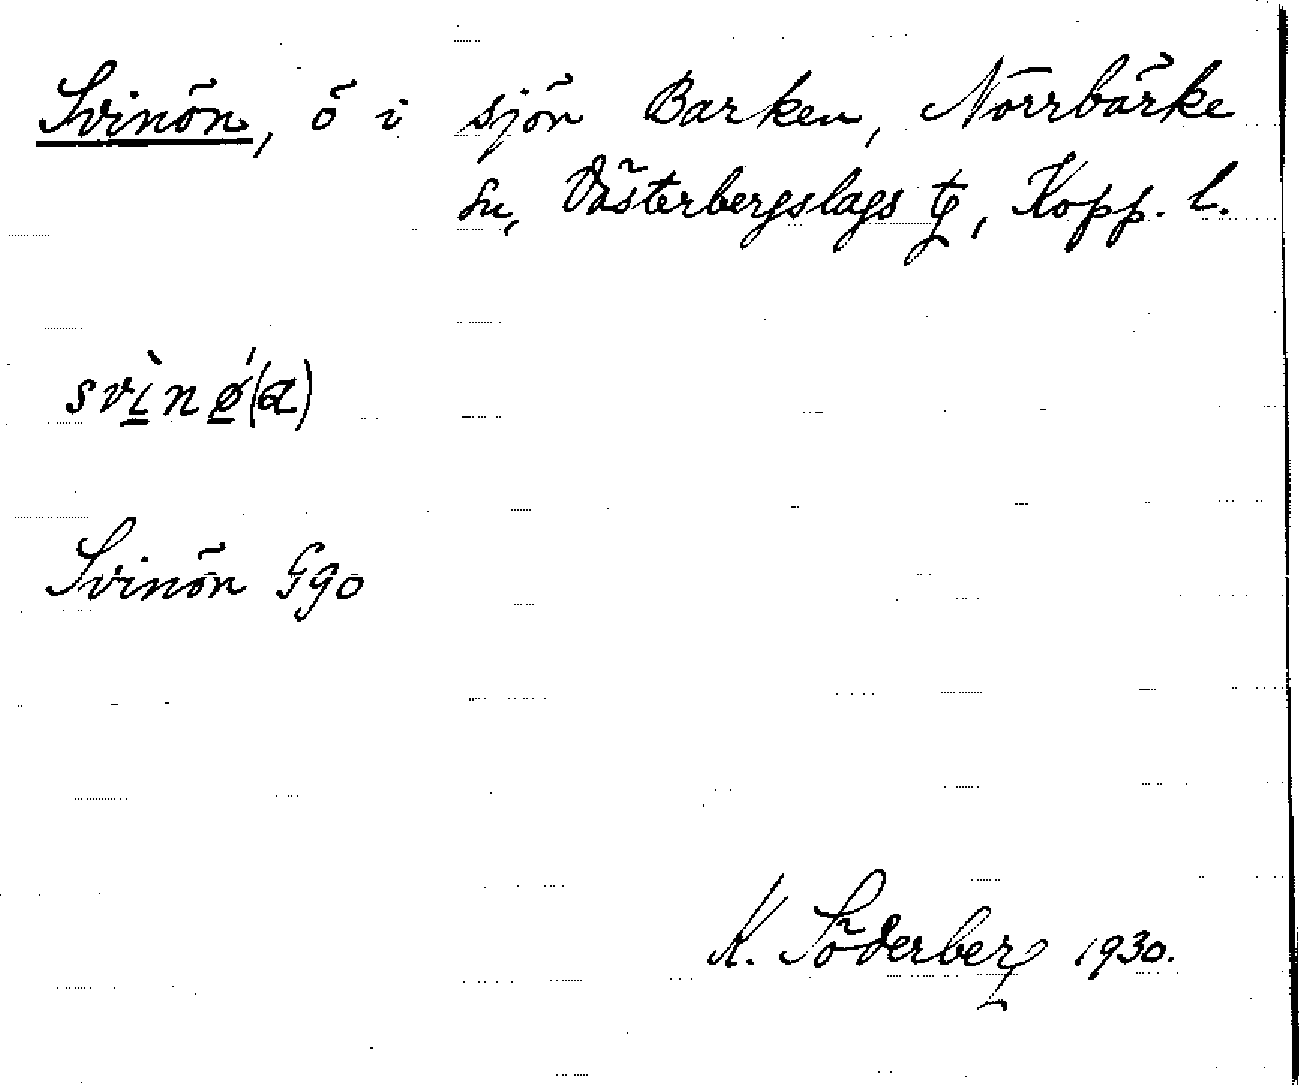 Svinön, ö i sjön Barken, Norrbärke
sn, Västerbergslags tg, Kopp. l.
svìnǿ(a)
Svinön Ggo
K. Söderberg 1930.